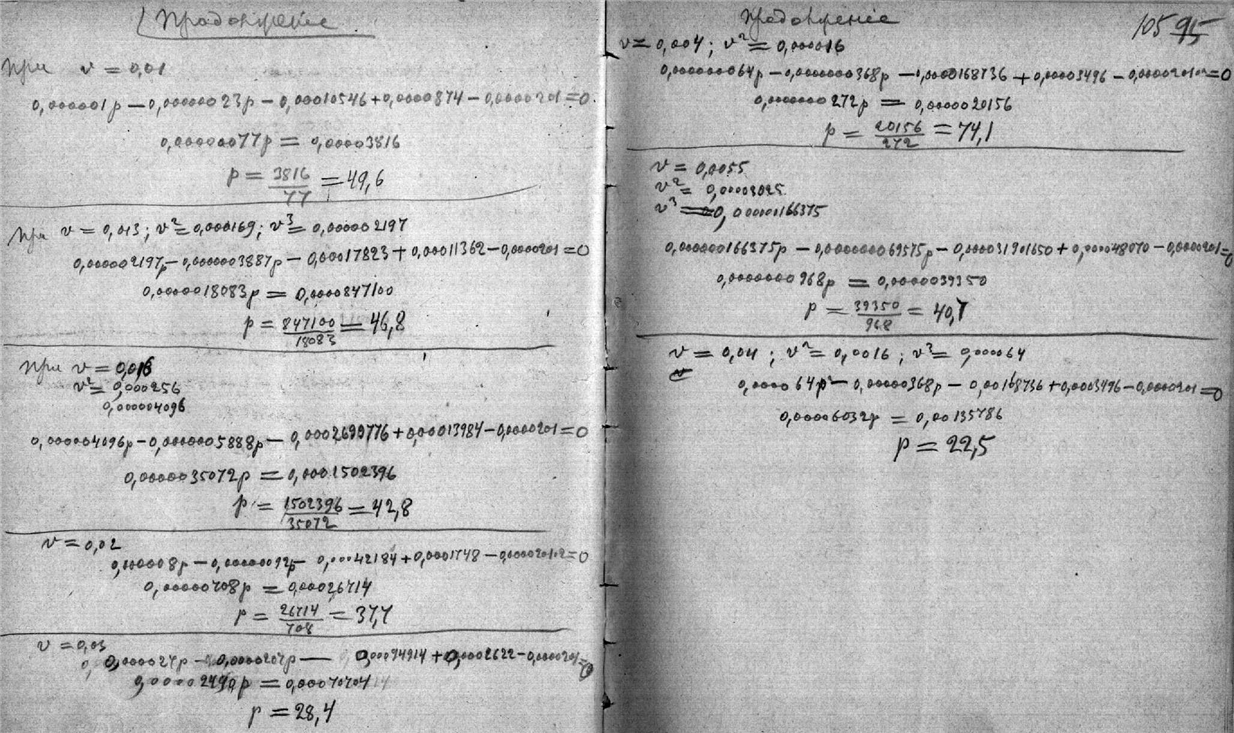 Продолжение
При v = 0,01
0,000001p − 0,00000023p − 0,00010546 + 0,0000874 − 0,0000201 = 0
0,00000077p = 0,00003816
p = 3816/77 = 49,6
При v = 0,013; v² = 0,000169; v³ = 0,000002197
0,000002197p − 0,0000003887p − 0,00017823 + 0,00011362 − 0,0000201 = 0
0,0000018083p = 0,0000847100
p = 847100/18083 = 46,8
При v = 0,016
v² = 0,000256
0,000004096
0,000004096p − 0,0000005888p − 0,0002699776 + 0,00013984 − 0,0000201 = 0
0,0000035072p = 0,0001502396
p = 1502396/35072 = 42,8
v = 0,02
0,000008p − 0,00000092p − 0,00042184 + 0,0001748 − 0,00002010 = 0
0,00000708p = 0,00026714
p = 26714/708 = 37,7
v = 0,03
0,000027p − 0,00000207p − 0,00094914 + 0,0002622 − 0,0000201 = 0
p = 28,4
Продолжение
105 95
v = 0,004; v² = 0,000016
0,000000064p − 0,0000000368p − 0,0000168736 + 0,00003496 − = 0
0,0000000272p = 0,0000020156
p = 20156/272 = 74,1
v = 0,0055
v² = 0,00003025
v³ = 0,000000166375
0,000000166375p − 0,000000069575p − 0,000031901650 + 0,000048070 − 0,0000201 = 0
0,0000000968p = 0,0000039350
p = 39350/968 = 40,7
v = 0,04; v² = 0,0016; v³ = 0,000064
0,000064p − 0,00000368p − 0,00168736 + 0,0003496 − 0,0000201 = 0
0,00006032p = 0,00135786
p = 22,5